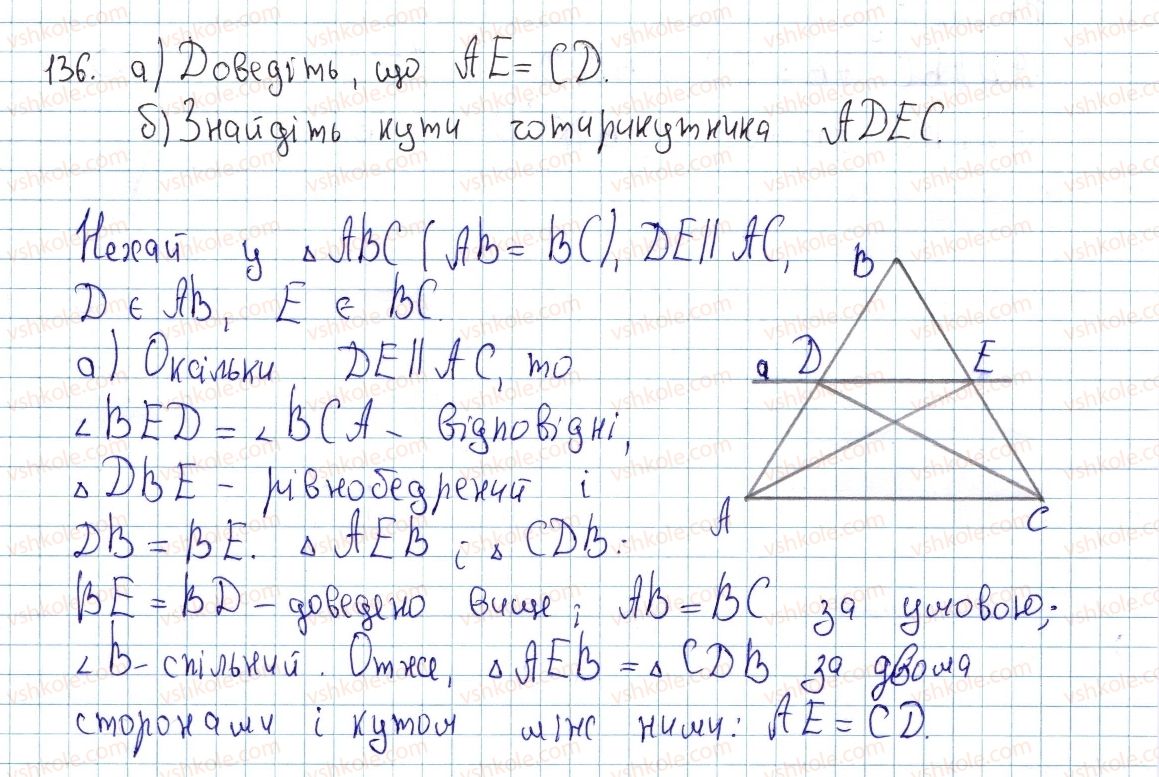 136. а) Доведіть, що AE = CD.
б) Знайдіть кути чотирикутника ADEC.
Нехай у △ABC (AB = BC), DE || AC,
D є AB, E є BC.
а) Окільки DE || AC, то
∠BED = ∠BCA - відповідні,
△DBE - рівнобедрений і
DB = BE. △AEB і △CDB:
BE = BD - доведено вище; AB = BC за умовою;
∠B - спільний. Отже, △AEB = △CDB за двома
сторонами і кутом між ними: AE = CD.
B
a D E
A C
vshkole.com